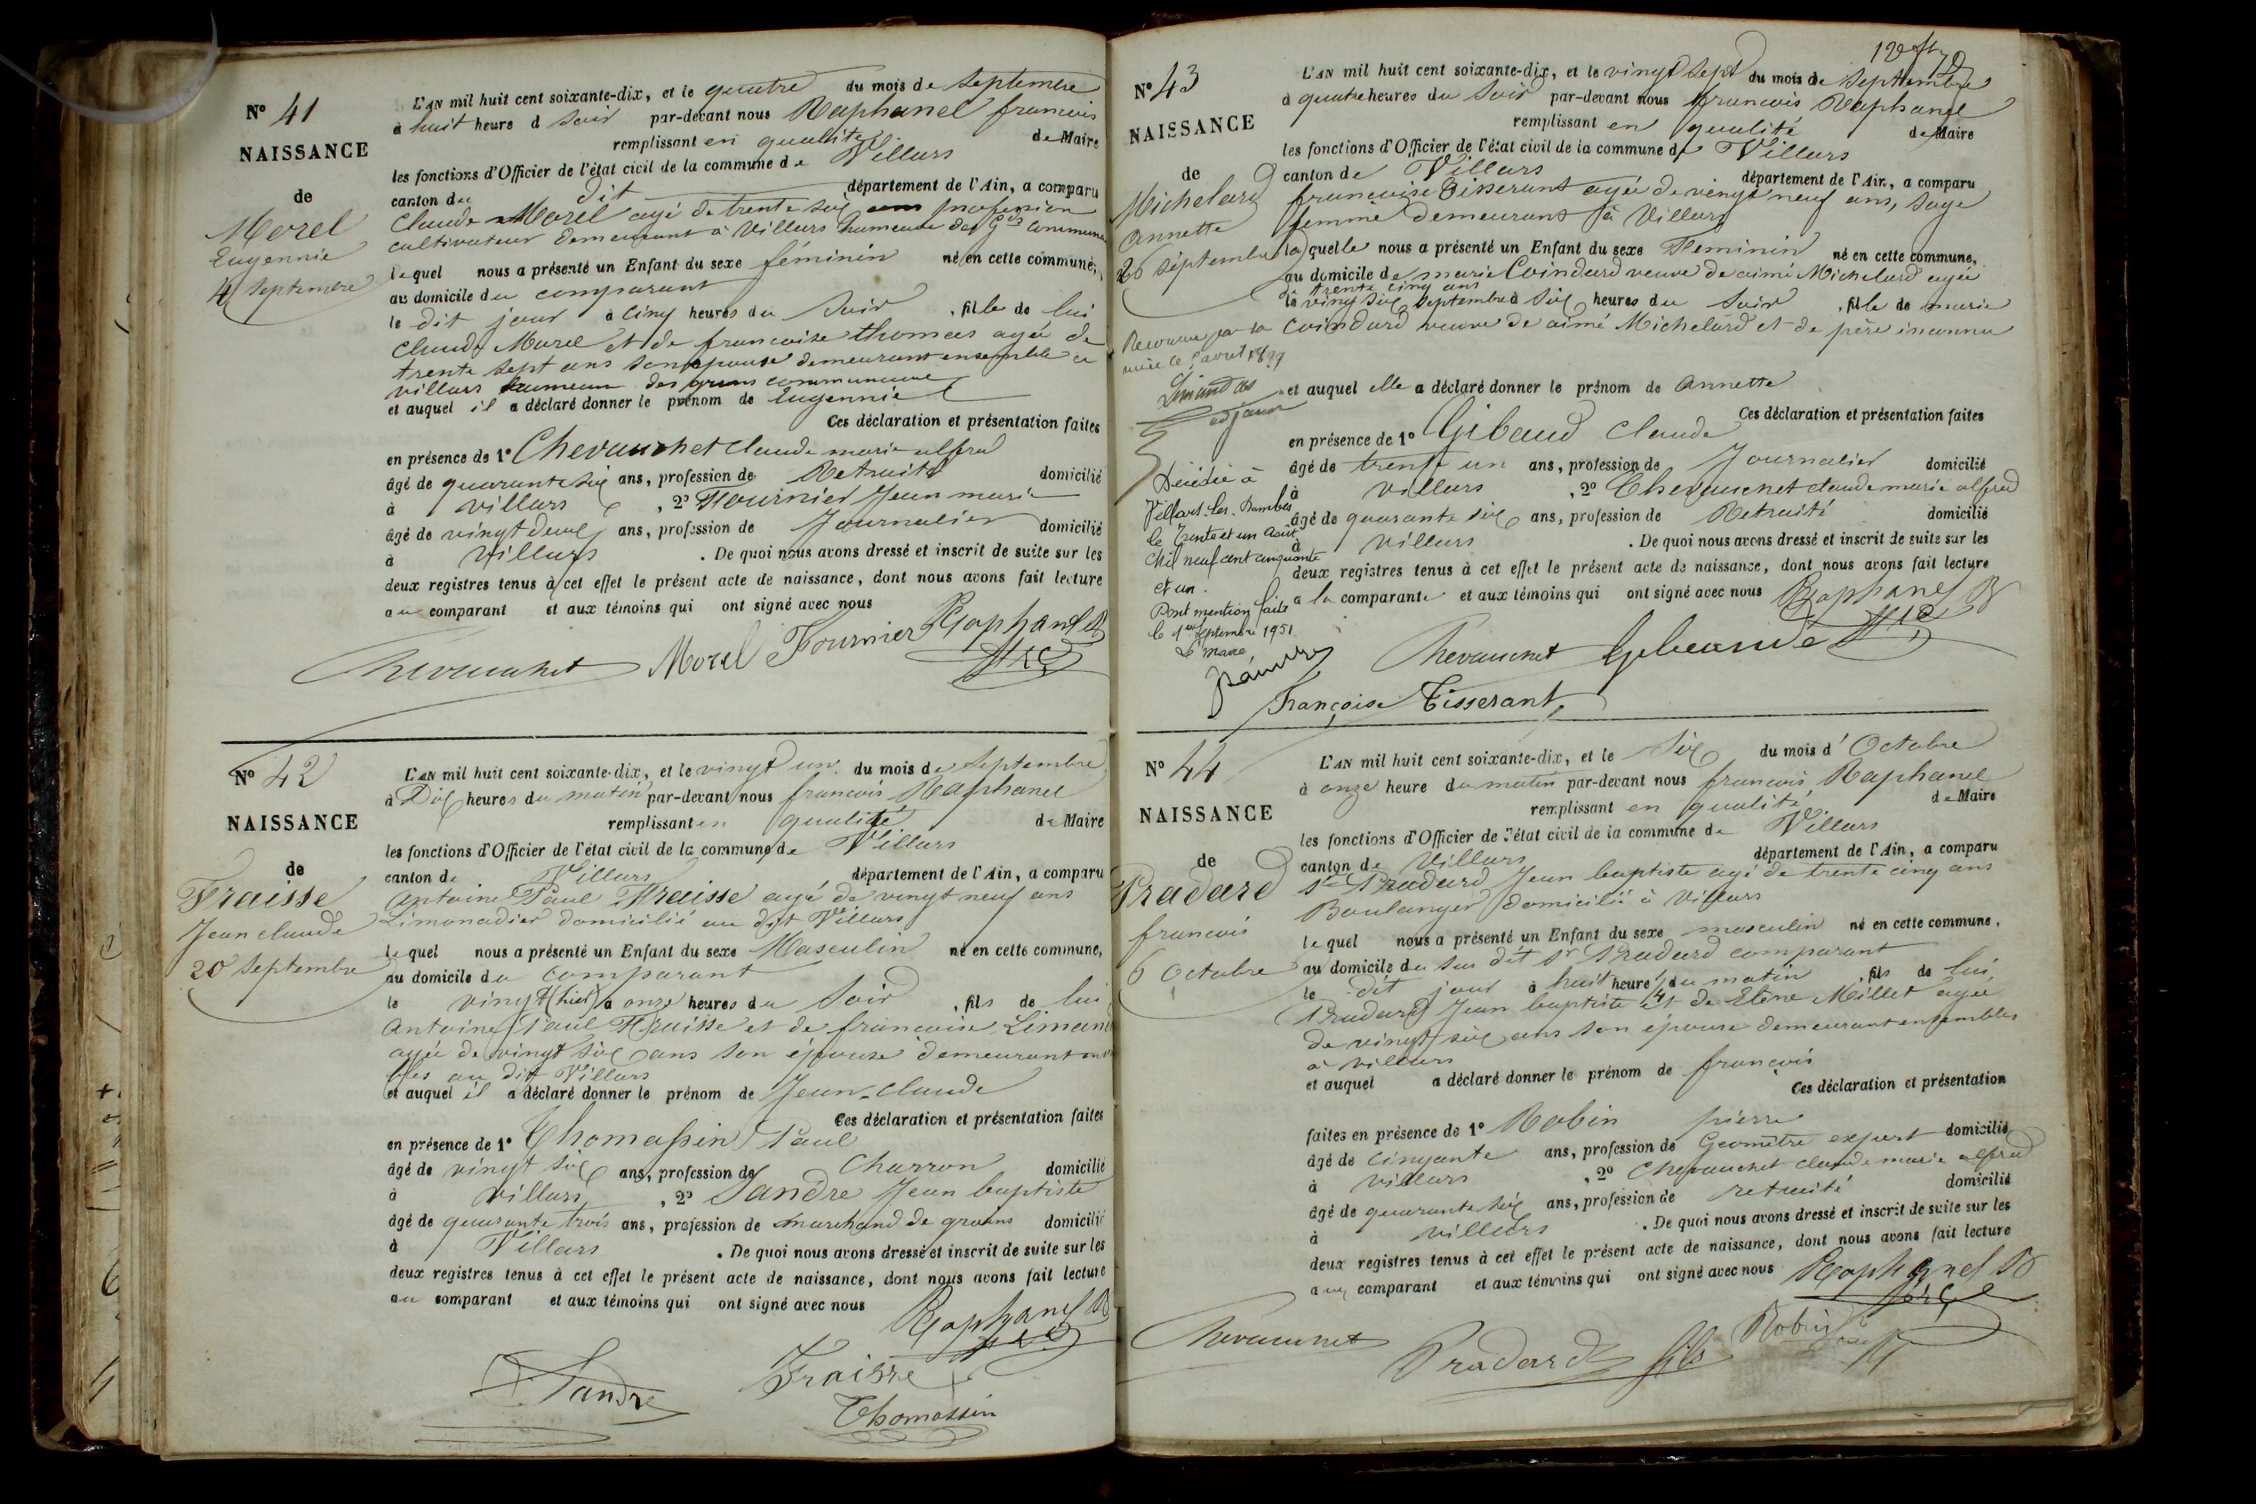 N° 41
NAISSANCE
de
Morel
Eugennie
4 septembre
L'AN mil huit cent soixante-dix, et le quatre du mois de septembre
à huit heure d soir par-devant nous Raphanel francois
remplissant en qualité de Maire
les fonctions d'Officier de l'état civil de la commune de Villars
canton du dit département de l'Ain, a comparu
Claude Morel agé de trente six profession
cultivateur demeurant à Villars hameau des Gds communes
lequel nous a présenté un Enfant du sexe féminin né en cette commune,
au domicile du comparant
le dit jour à cinq heures du soir , fille de lui
Claude Morel et de francoise thomas agée de
trente sept ans son epouse demeurant ensemble a
villars hameau des
et auquel il a déclaré donner le prénom de Eugennie
Ces déclaration et présentation faites
en présence de 1° Chevauchet Claude marie alfred
âgé de quarante six ans, profession de Retraité domicilié
à villars , 2° Fournier Jean marie
âgé de vingt deux ans, profession de Journalier domicilié
à villars . De quoi nous avons dressé et inscrit de suite sur les
deux registres tenus à cet effet le présent acte de naissance, dont nous avons fait lecture
au comparant et aux témoins qui ont signé avec nous
Raphanel
Chevauchet Morel Fournier
N° 42
NAISSANCE
de
Fraisse
Jean claude
20 septembre
L'AN mil huit cent soixante-dix, et le vingt un du mois de septembre
à Dix heures du matin par-devant nous francois Raphanel
remplissant en qualité de Maire
les fonctions d'Officier de l'état civil de la commune de Villars
canton de Villars département de l'Ain, a comparu
Antoine Paul Fraisse agé de vingt neuf ans
Limonadier domicilié au dit Villars
lequel nous a présenté un Enfant du sexe Masculin né en cette commune,
au domicile du comparant
le vingt (hier) à onze heures du soir , fils de lui
Antoine Paul Fraisse et de francoise
agée de vingt six ans son épouse demeurant
bles au dit Villars
et auquel il a déclaré donner le prénom de Jean-claude
Ces déclaration et présentation faites
en présence de 1° Thomassin Paul
âgé de vingt six ans, profession de Charron domicilié
à villars , 2° Sandre Jean baptiste
âgé de quarante trois ans, profession de marchand de grains domicilié
à Villars . De quoi nous avons dressé et inscrit de suite sur les
deux registres tenus à cet effet le présent acte de naissance, dont nous avons fait lecture
au comparant et aux témoins qui ont signé avec nous
Raphanel
Sandre Fraisse
Thomassin
N° 43
NAISSANCE
de
Michelard
annette
26 septembre
Reconnue par sa
mère le avril
adjoint
Décédée à
Villars-les-Dombes
le Trente et un Août
Mil neuf cent cinquante
et un.
Dont mention faite
le 1er Septembre 1951
Le Maire
L'AN mil huit cent soixante-dix, et le vingt sept du mois de septembre
à quatre heures du soir par-devant nous francois Raphanel
remplissant en qualité de Maire
les fonctions d'Officier de l'état civil de la commune de Villars
canton de Villars département de l'Ain, a comparu
francoise Tisserant agée de vingt neuf ans, sage
femme demeurant à Villars
laquelle nous a présenté un Enfant du sexe Feminin né en cette commune,
au domicile de marie Coindard veuve de aimé Michelard agée
de trente cinq ans
le vingt six septembre à six heures du soir , fille de marie
Coindard veuve de aimé Michelard et de père inconnu
et auquel elle a déclaré donner le prénom de annette
Ces déclaration et présentation faites
en présence de 1° Gibaud Claude
âgé de trente un ans, profession de Journalier domicilié
à villars , 2° Chevauchet claude marie alfred
âgé de quarante six ans, profession de Retraité domicilié
à villars . De quoi nous avons dressé et inscrit de suite sur les
deux registres tenus à cet effet le présent acte de naissance, dont nous avons fait lecture
a la comparante et aux témoins qui ont signé avec nous Raphanel
Chevauchet
Françoise Tisserant
N° 44
NAISSANCE
de
Pradard
francois
6 Octobre
L'AN mil huit cent soixante-dix, et le six du mois d' Octobre
à onze heure du matin par-devant nous francois Raphanel
remplissant en qualité de Maire
les fonctions d'Officier de l'état civil de la commune de Villars
canton de Villars département de l'Ain, a comparu
Sr Pradard Jean baptiste agé de trente cinq ans
Boulanger domicilié à Villars
lequel nous a présenté un Enfant du sexe masculin né en cette commune,
au domicile du sus dit Sr Pradard comparant
le dit jour à huit heure du matin , fils de lui
Pradard Jean baptiste et de Elène Millet agée
de vingt six ans son épouse demeurant ensembles
à villars
et auquel a déclaré donner le prénom de francois
Ces déclaration et présentation
faites en présence de 1° Robin pierre
âgé de cinquante ans, profession de Géomètre expert domicilié
à villars , 2° Chevauchet claude marie alfred
âgé de quarante six ans, profession de retraité domicilié
à villars . De quoi nous avons dressé et inscrit de suite sur les
deux registres tenus à cet effet le présent acte de naissance, dont nous avons fait lecture
au comparant et aux témoins qui ont signé avec nous Raphanel
Chevauchet Pradard fils Robin